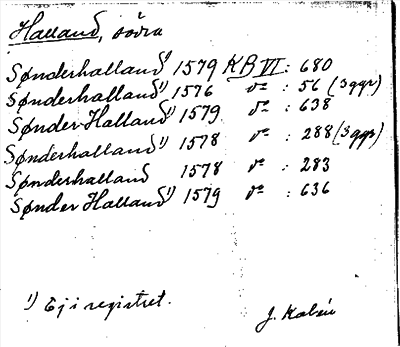 Halland, södra
Sønderhalland¹⁾ 1579 KB VI : 680
Sønderhalland¹⁾ 1576 dº : 56 (3ggr)
Sønder Halland¹⁾ 1579 dº : 638
Sønderhalland¹⁾ 1578 dº : 288 (3ggr)
Sønderhalland 1578 dº : 283
Sønder Halland¹⁾ 1579 dº : 636
¹⁾ Ej i registret.
J. Kalén